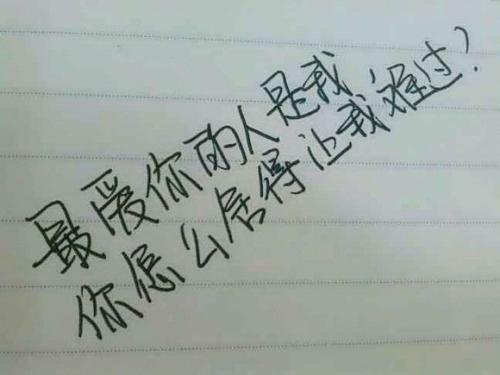 最爱你的人是我,
你怎么舍得让我难过?